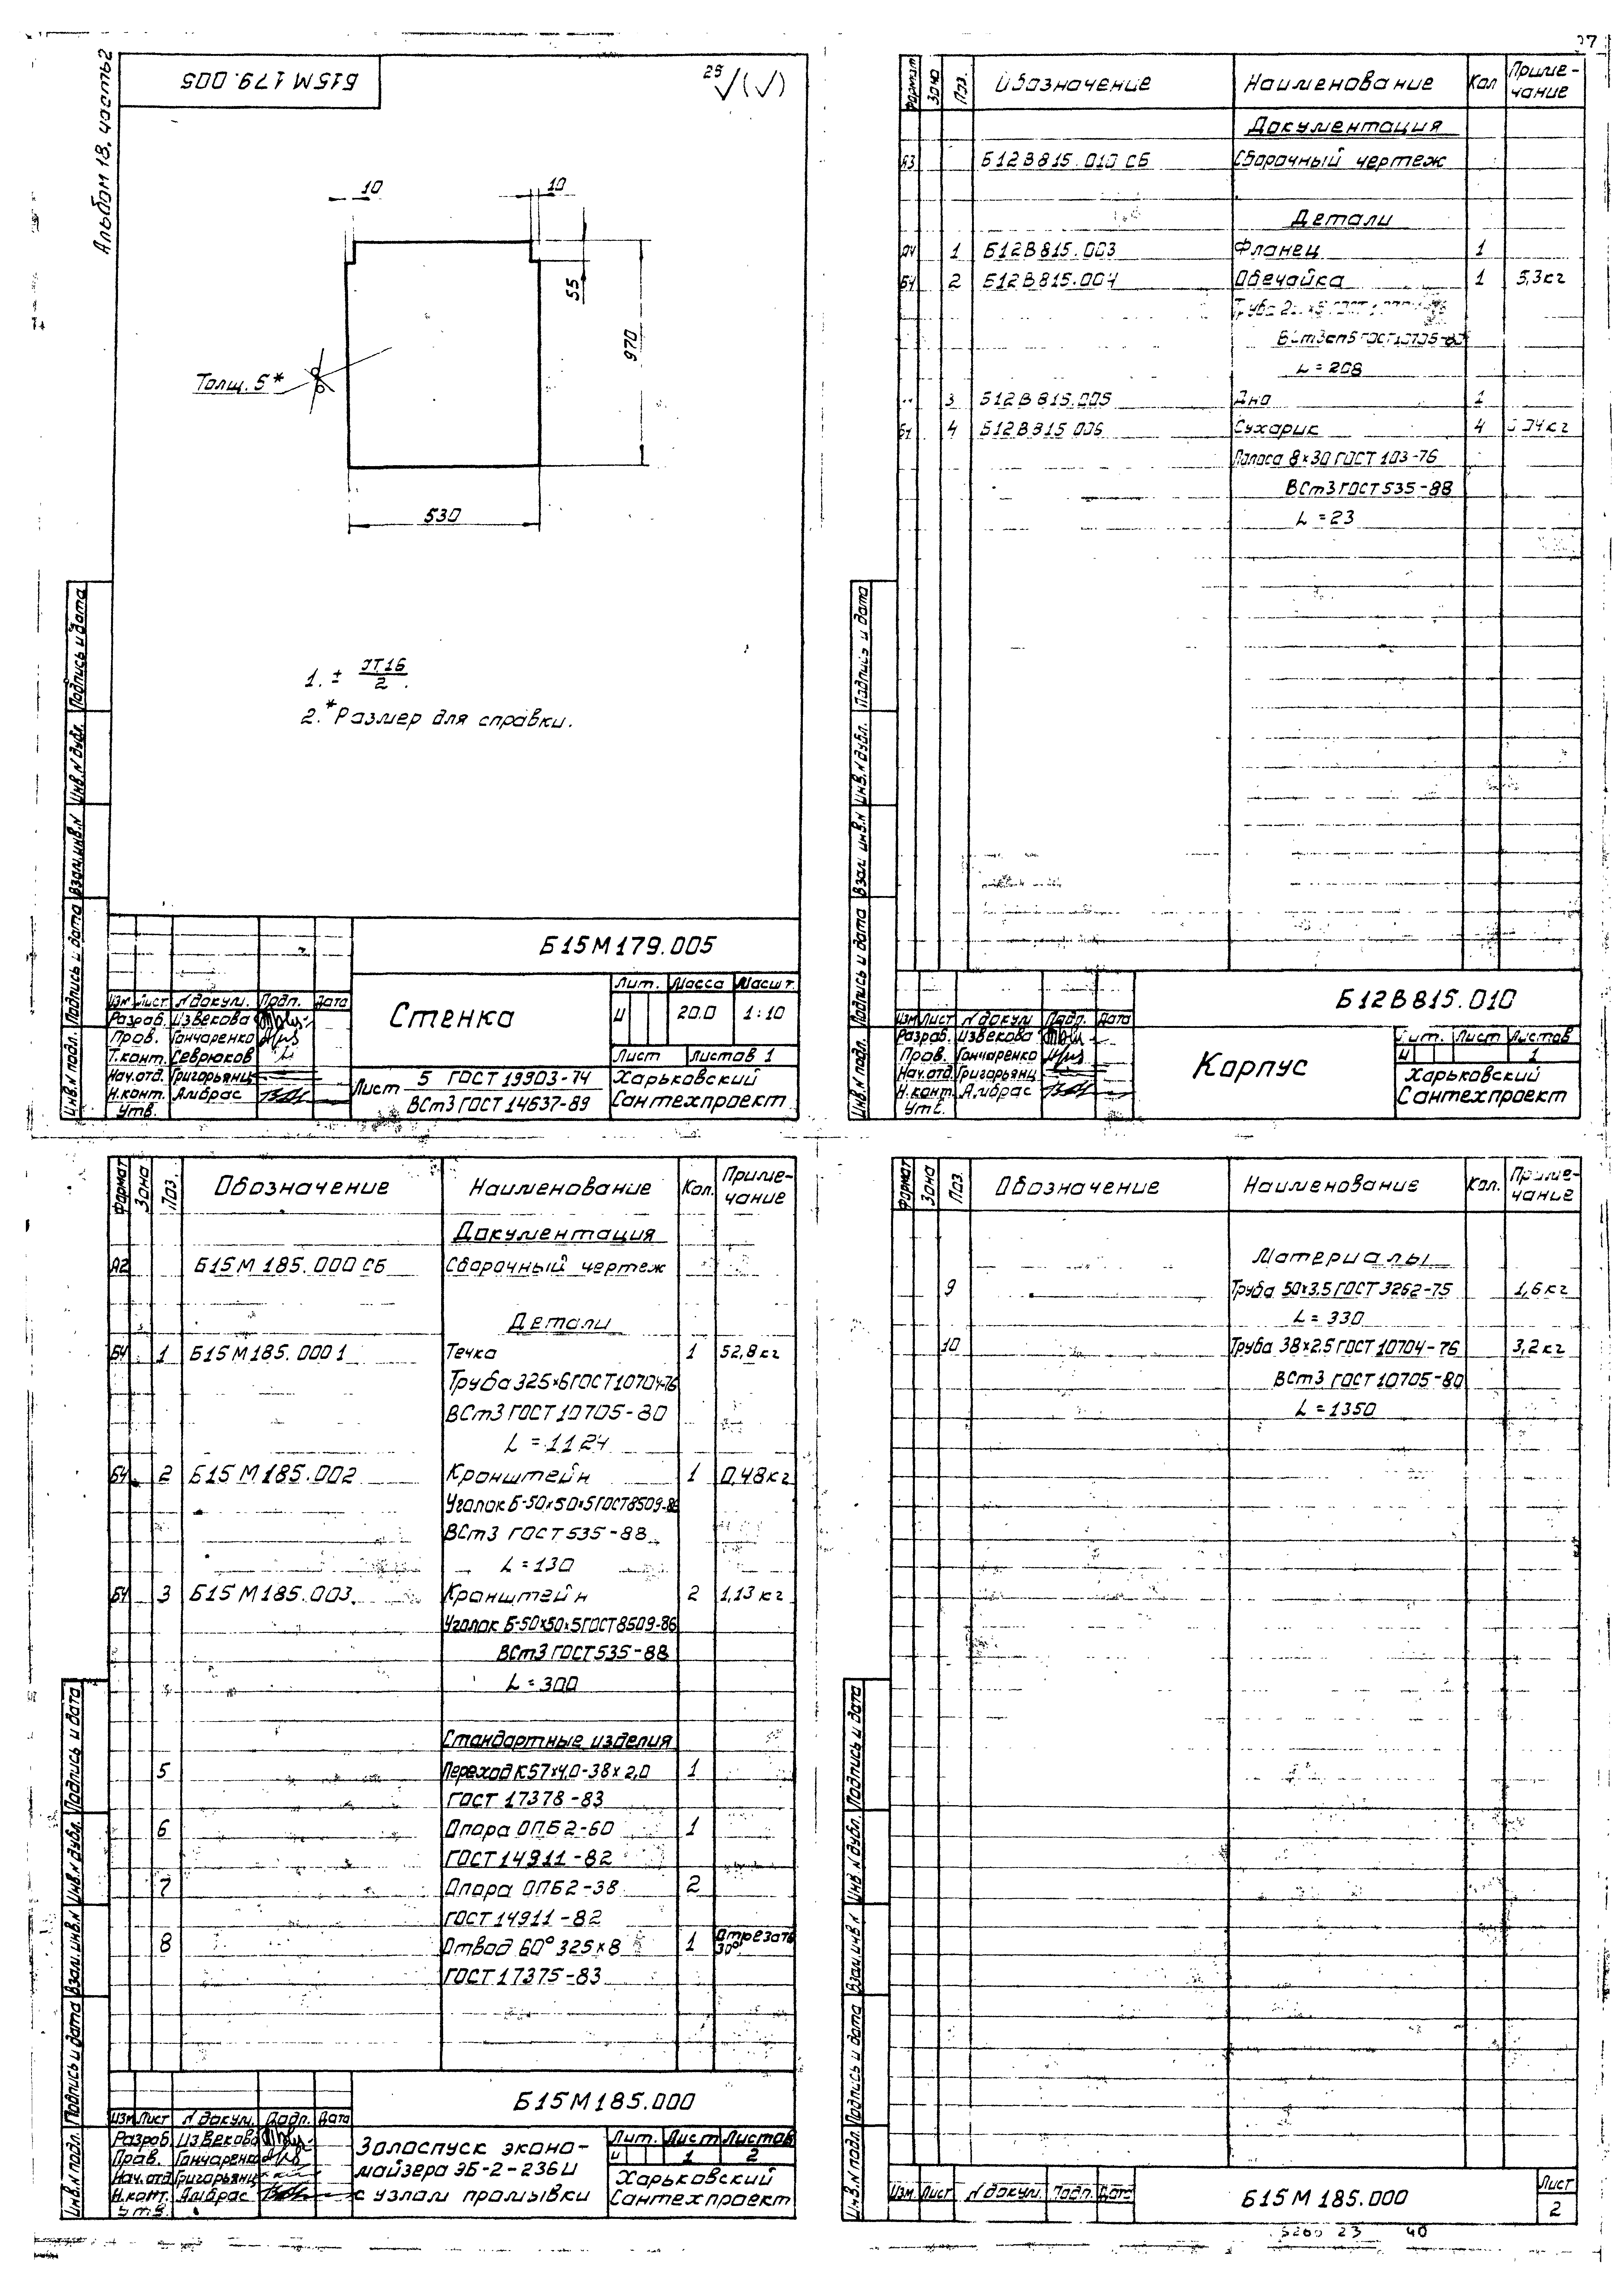 Альбом 18, часть 2
Б15М179.005
25 √(√)
10
10
55
970
Толщ. 5*
530
1. ± JT16/2.
2.* Размер для справки.
Подпись и дата
Инв.N дубл.
Взам.инв.N
Подпись и дата
Инв.N подл.
Б15М179.005
Изм Лист N докум. Подп. Дата
Разраб. Извекова
Пров. Гончаренко
Т.конт. Севрюков
Нач.отд. Григорьянц
Н.конт. Амбрас
Утв.
Стенка
Лит. Масса Масшт.
И 20.0 1:10
Лист Листов 1
Лист 5 ГОСТ 19903-74
ВСт3 ГОСТ 14637-89
Харьковский
Сантехпроект
Формат Зона Поз. Обозначение Наименование Кол Приме-
чание
Документация
Б12В815.010 СБ Сборочный чертеж
Детали
1 Б12В815.003 Фланец 1
Б4 2 Б12В815.004 Обечайка 1 5,3кг
Труба
ВСт3сп5 ГОСТ10705-80
L=208
3 Б12В815.005 Дно 1
Б4 4 Б12В815.006 Сухарик 4
Полоса 8×30 ГОСТ 103-76
ВСт3 ГОСТ 535-88
L=23
Подпись и дата
Инв.N дубл.
Взам инв.N
Подпись и дата
Инв.N подл.
Б12В815.010
Изм Лист N докум Подп. Дата
Разраб. Извекова
Пров. Гончаренко
Нач.отд. Григорьянц
Н.конт. Амбрас
Утв.
Корпус
Лит. Лист Листов
И 1
Харьковский
Сантехпроект
Формат Зона Поз. Обозначение Наименование Кол. Приме-
чание
Документация
А2 Б15М185.000 СБ Сборочный чертеж
Детали
Б4 1 Б15М185.0001 Течка 1 52,8кг
Труба 325×6 ГОСТ10704-76
ВСт3 ГОСТ 10705-80
L=1124
Б4 2 Б15М185.002 Кронштейн 1 0,48кг
Уголок Б-50×50×5 ГОСТ8509-86
ВСт3 ГОСТ 535-88
L=130
Б4 3 Б15М185.003 Кронштейн 2 1,13кг
Уголок Б-50×50×5 ГОСТ8509-86
ВСт3 ГОСТ 535-88
L=300
Стандартные изделия
5 Переход К57×4,0-38×2,0 1
ГОСТ 17378-83
6 Опора ОПБ2-60 1
ГОСТ 14911-82
7 Опора ОПБ2-38 2
ГОСТ 14911-82
8 Отвод 60° 325×8 1 Отрезать 30°
ГОСТ 17375-83
Подпись и дата
Инв.N дубл.
Взам.инв.N
Подпись и дата
Инв.N подл.
Б15М185.000
Изм Лист N докум. Подп. Дата
Разраб. Извекова
Пров. Гончаренко
Нач.отд. Григорьянц
Н.конт. Амбрас
Утв.
Золоспуск эконо-
майзера ЭБ-2-236И
с узлом промывки
Лит. Лист Листов
И 1 2
Харьковский
Сантехпроект
Формат Зона Поз. Обозначение Наименование Кол. Приме-
чание
Материалы
9 Труба 50×3.5 ГОСТ 3262-75 1,6кг
L=330
10 Труба 38×2.5 ГОСТ 10704-76 3,2кг
ВСт3 ГОСТ 10705-80
L=1350
Подпись и дата
Инв.N дубл.
Взам инв.N
Подпись и дата
Инв.N подл.
Изм. Лист N докум. Подп. Дата
Б15М185.000
Лист
2
23 40